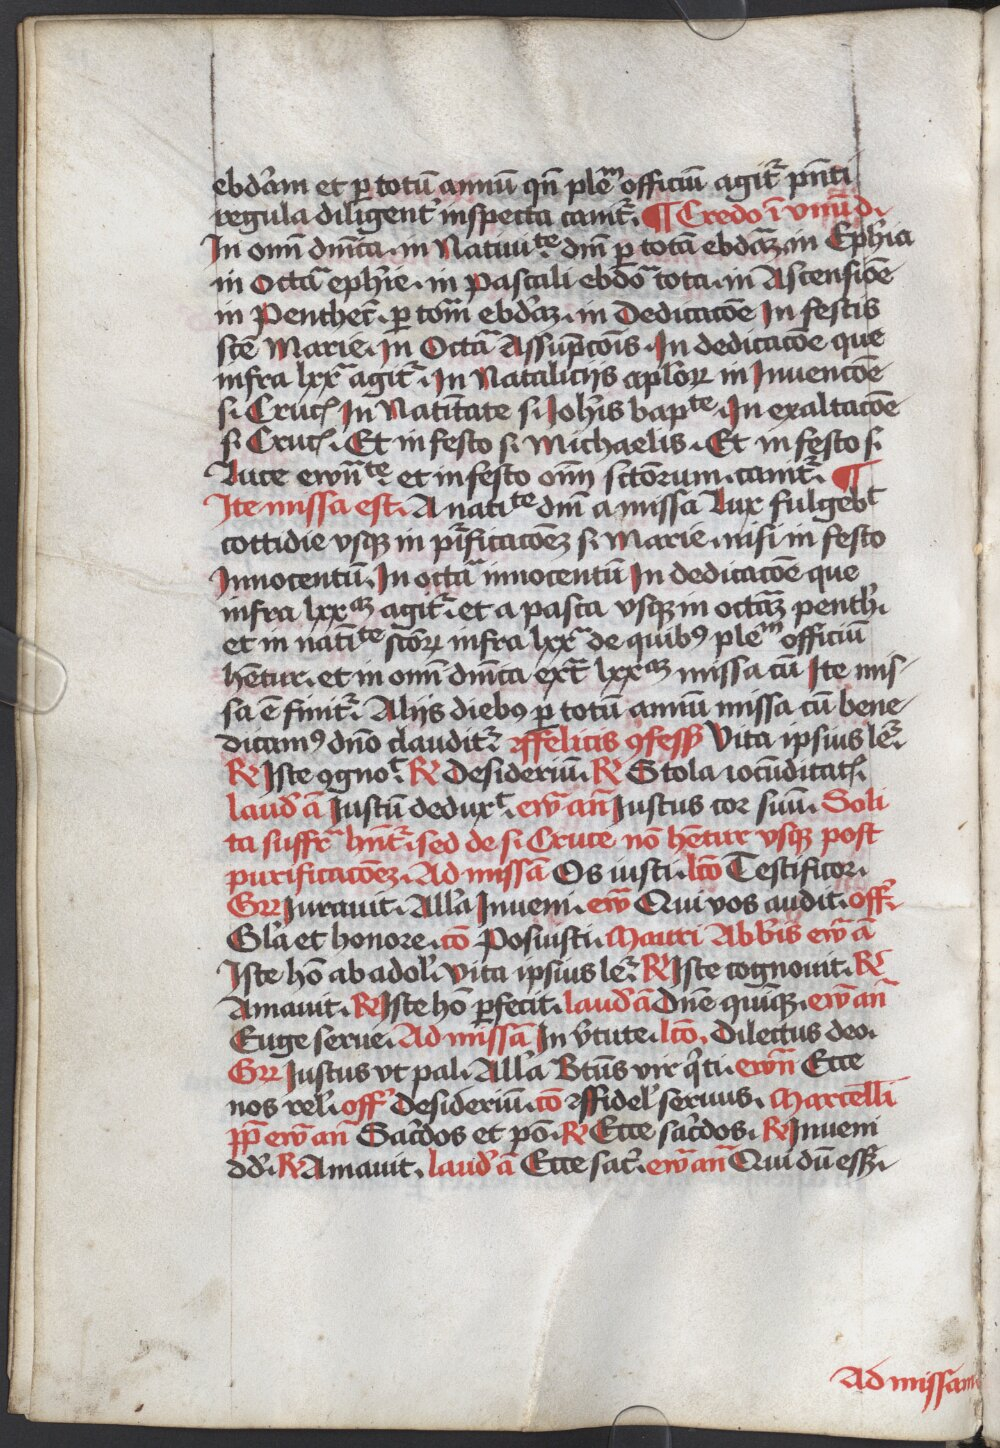 ebd'am et p totū annū qn̄ plem̄ officiū agit᷑ pn̄ti
regula diligent' inspecta canit᷑. ¶ Credo ī vnū d.
In omī dn̄ica. in Natiuite. dn̄i p totā ebdāz. in Eph'ia
in Octa͞ eph'ie. in Pascali ebdōa tota. in Ascensiōe
in Penthec᷑. p tōm ebd'az. in Dedicacōe In festis
scē Marie. In Octa͞ Assūpcōis. In dedicacōe que
infra lxxa agit᷑. In Nataliciis aplōꝝ in Inuencōe
s. Crucꝭ In Natītate s. Ioh'is bapte. In exaltacōe
s. Crucꝭ. Et in festo s. Michaelis. Et in festo s.
Luce ewn̄te et in festo om̄i sctōrum. canit᷑. ¶
Ite missa est. A natite dn̄i a missa Lux fulgebt
cottidie vsqꝫ in p'ificacōeꝫ s. Marie. nisi in festo
Innocentū. In octa͞ innocentū In dedicacōe que
infra lxxaꝫ agit᷑. et a pasca vsqꝫ in octāꝫ penth'.
et in natīte sctōꝝ infra lxxa de quibꝰ plem̄ officiū
hēntur. et in omī dn̄ica ext᷑ lxxaꝫ missa cū Ite mis-
sa ē finit᷑. Aliis diebꝰ p totū annū missa cū bene
dicamꝰ dn̄o claudit᷑. Felicis ꝯfessꝫ Vita ipsius le᷑.
R Iste ꝯgnot. R Desideriū. R Stola iocūditatꝭ.
laud' ā Iustū deduxt. ew̄ an̄ Iustus cor suū. Soli
ta suffr̄a hn̄t᷑. sed de s. Cruce nō hēntur vsqꝫ post
purificacōeꝫ. Ad missā Os iusti. lcō Testificor.
Grr Iurauit. All'a Inueni. ew̄ Qui vos audit. off'.
Gl'a et honore. cō Posuisti. Mauri Abb'is ew̄ ā
Iste hō ab adol'. Vita ipsius le᷑. R Iste cognouit. R
Amauit. R Iste hō pfecit. laud' ā Dn̄e quīqꝫ. ew̄ an̄
Euge serue. Ad missā In v'tute. lcō. Dilectus deo.
Grr Iustus vt pal. All'a Btūs vir q'ti. ewn̄ Ecce
nos rel'. off' Desideriū. cō Fidel' seruus. Marcelli
pp̄ ew̄ an̄ Sac'dos et pō. R Ecce sac'dos. R Inueni
dd'. R Amauit. laud' ā Ecce sac'. ew̄ an̄ Qui dū essꝫ.
Ad missam